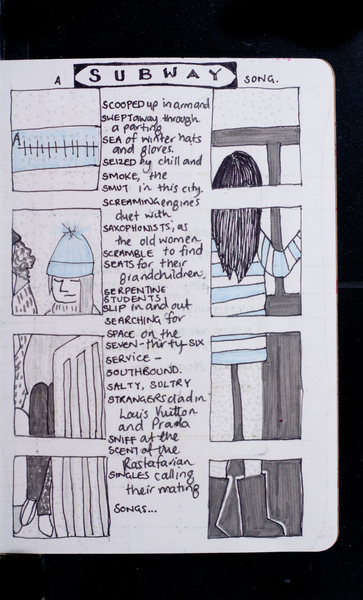 A SUBWAY SONG.
SCOOPED up in arm and
SWEPT away through
a parting
SEA of winter hats
and gloves.
SEIZED by chill and
SMOKE, the
SMUT in this city.
SCREAMING engine's
duet with
SAXOPHONISTS, as
the old women
SCRAMBLE to find
SEATS for their
grandchildren.
SERPENTINE
STUDENTS
SLIP in and out
SEARCHING for
SPACE on the
SEVEN-thirty-SIX
SERVICE -
SOUTHBOUND.
SALTY, SULTRY
STRANGERS clad in
Louis Vuitton
and Prada
SNIFF at the
SCENT of the
Rastafarian
SINGLES calling
their mating
SONGS...
A